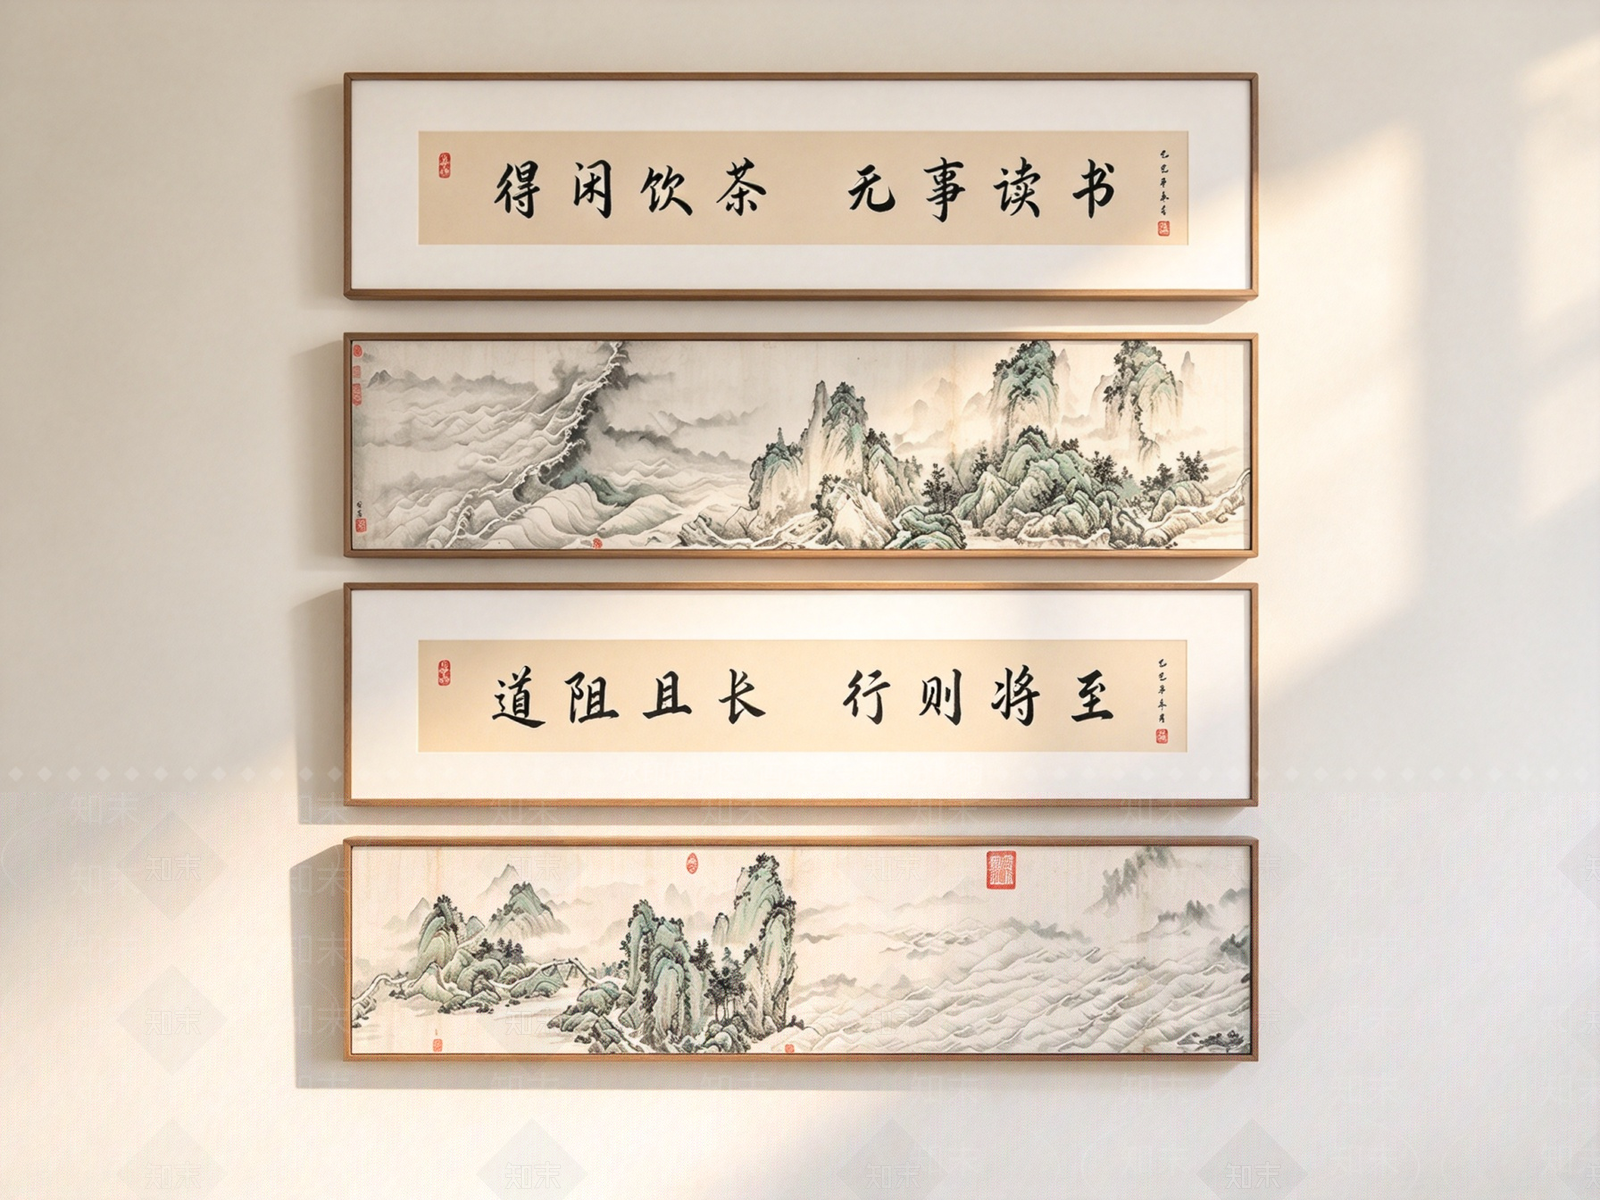 得闲饮茶 无事读书
道阻且长 行则将至
知末